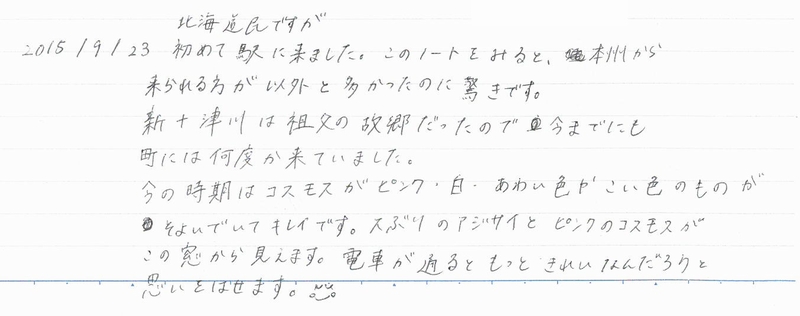 北海道民ですが
2015/9/23 初めて駅に来ました。このノートをみると、本州から
来られる方が以外と多かったのに驚きです。
新十津川は祖父の故郷だったので今までにも
町には何度か来ていました。
今の時期はコスモスがピンク・白・あわい色やこい色のものが
そよいでいてキレイです。大ぶりのアジサイとピンクのコスモスが
この窓から見えます。電車が通るともっときれいなんだろうと
思いをはせます。